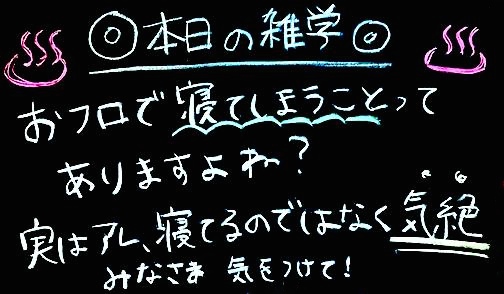 ◎本日の雑学◎
おフロで寝てしまうことって
ありますよね?
実はアレ、寝てるのではなく気絶
みなさま 気をつけて!